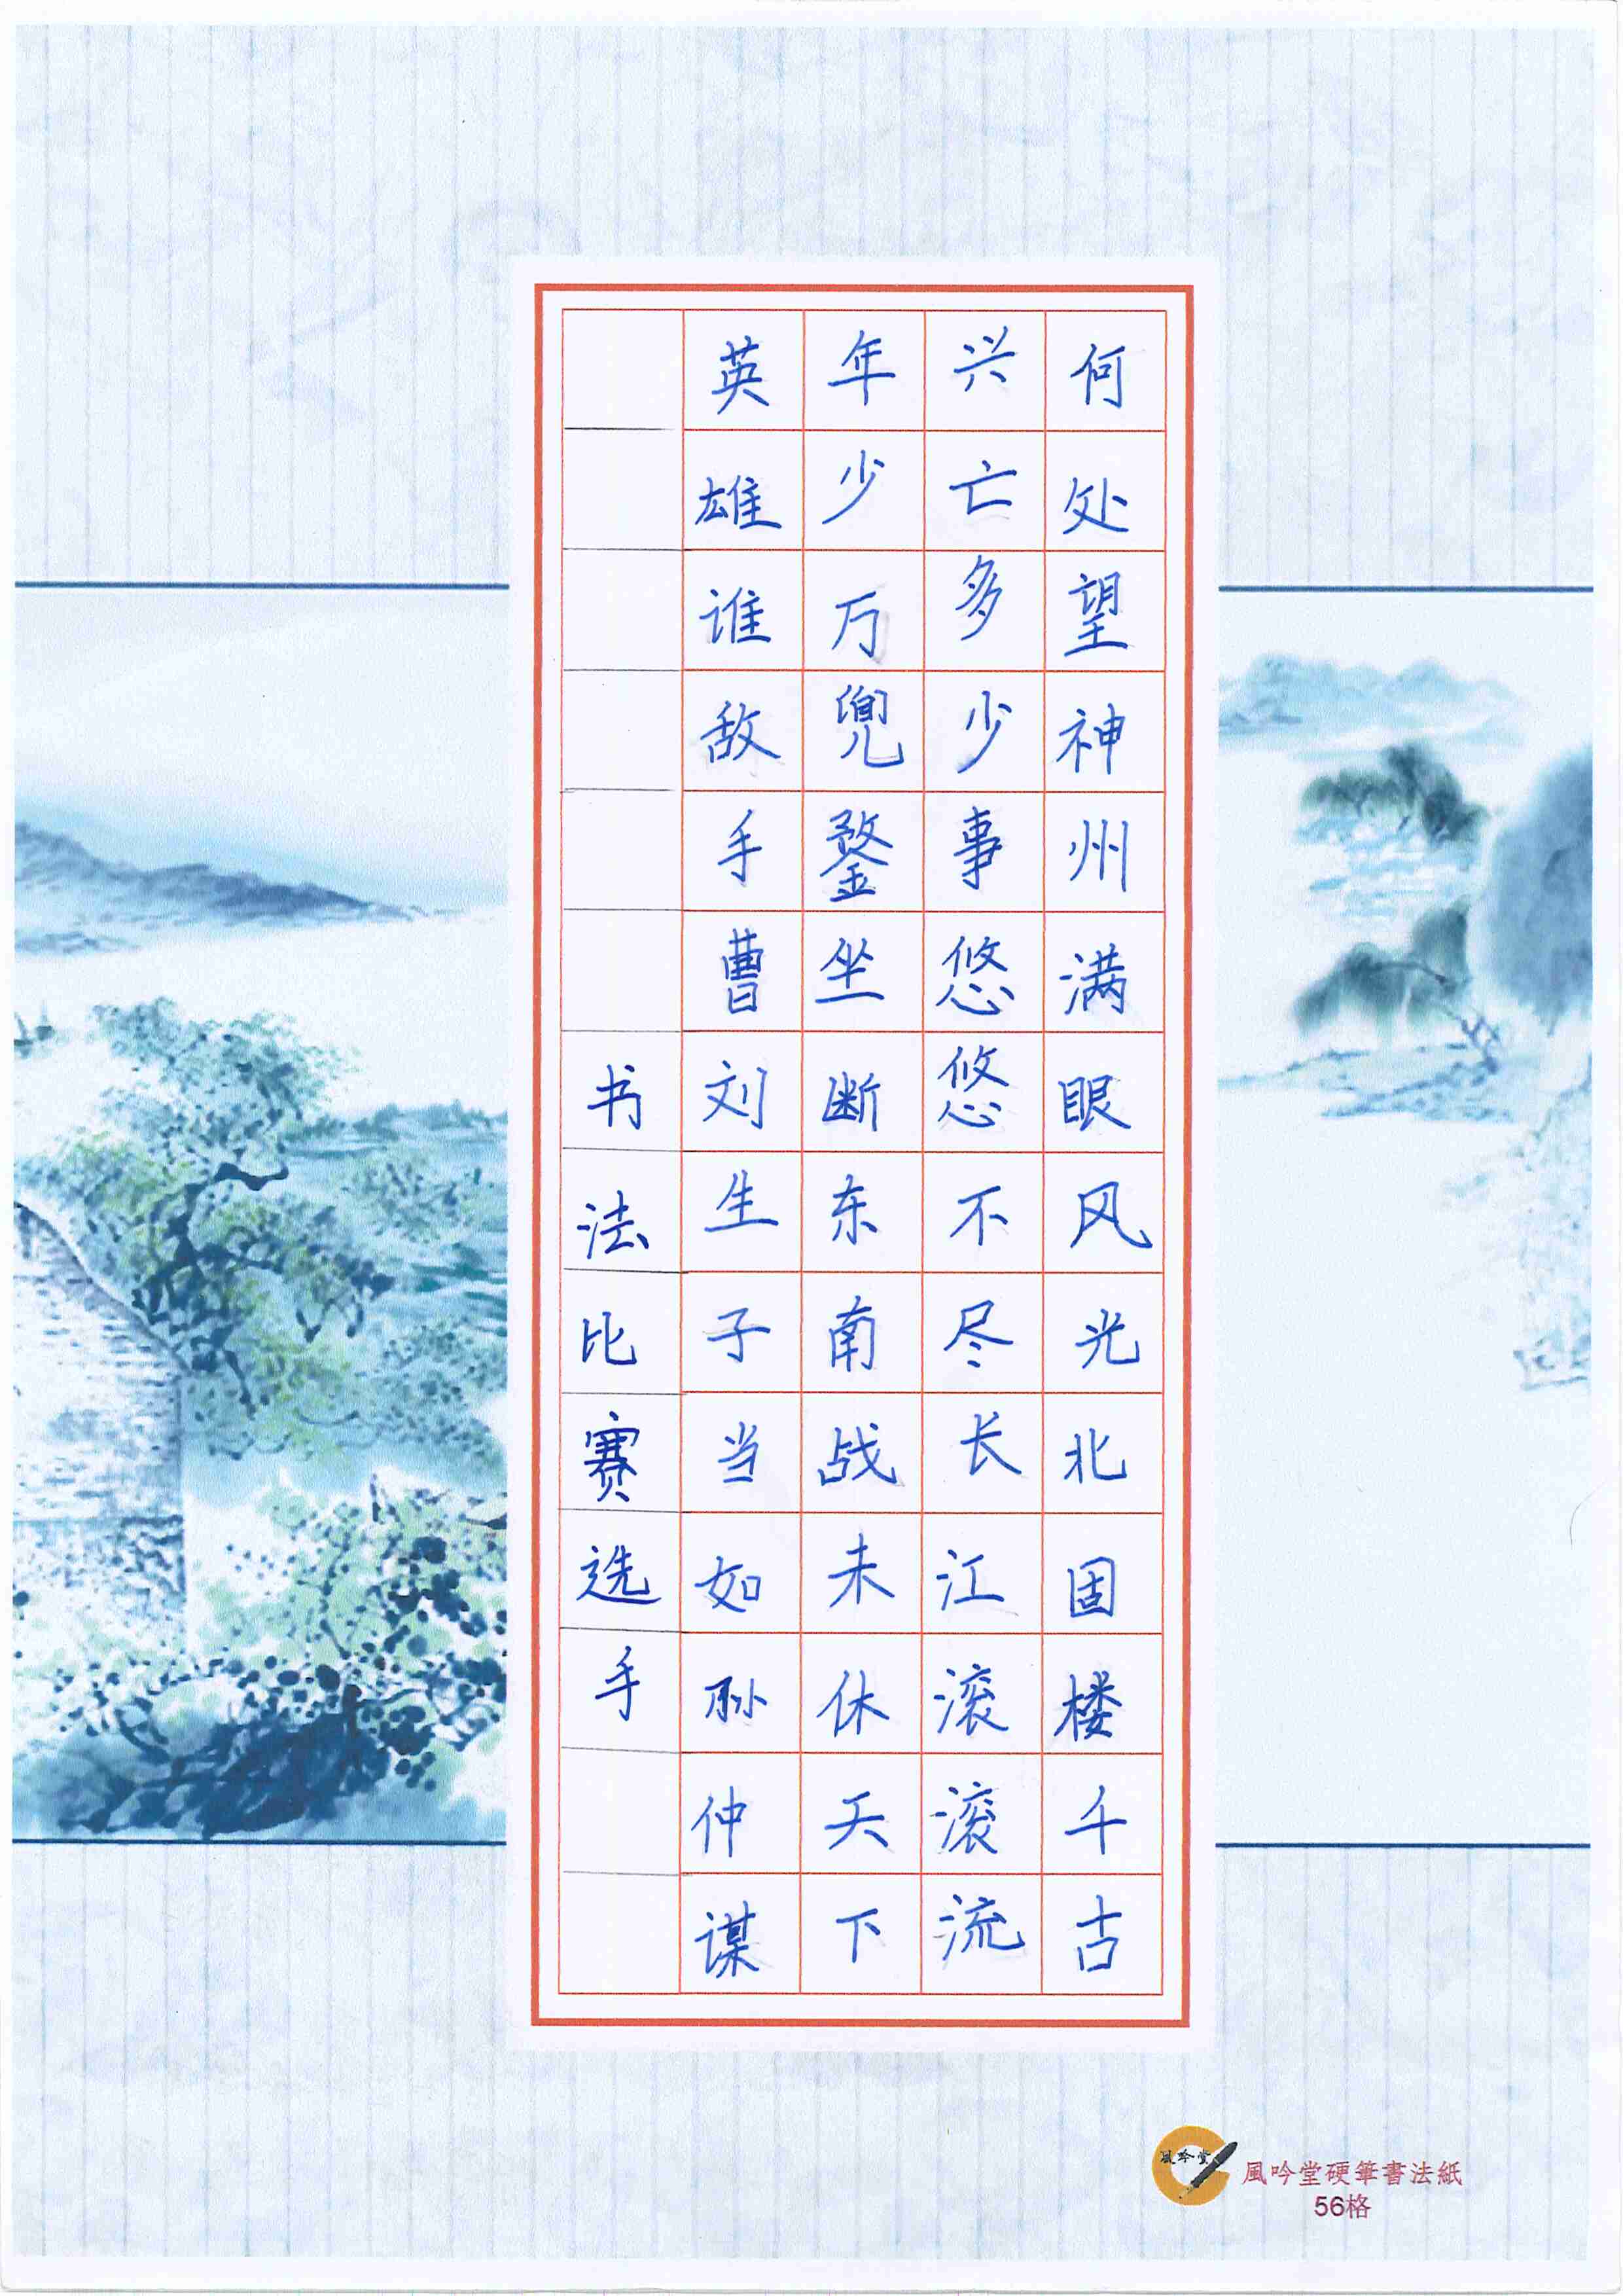 何处望神州满眼风光北固楼千古
兴亡多少事悠悠不尽长江滚滚流
年少万兜鍪坐断东南战未休天下
英雄谁敌手曹刘生子当如孙仲谋
书法比赛选手
風吟堂
風吟堂硬筆書法紙
56格